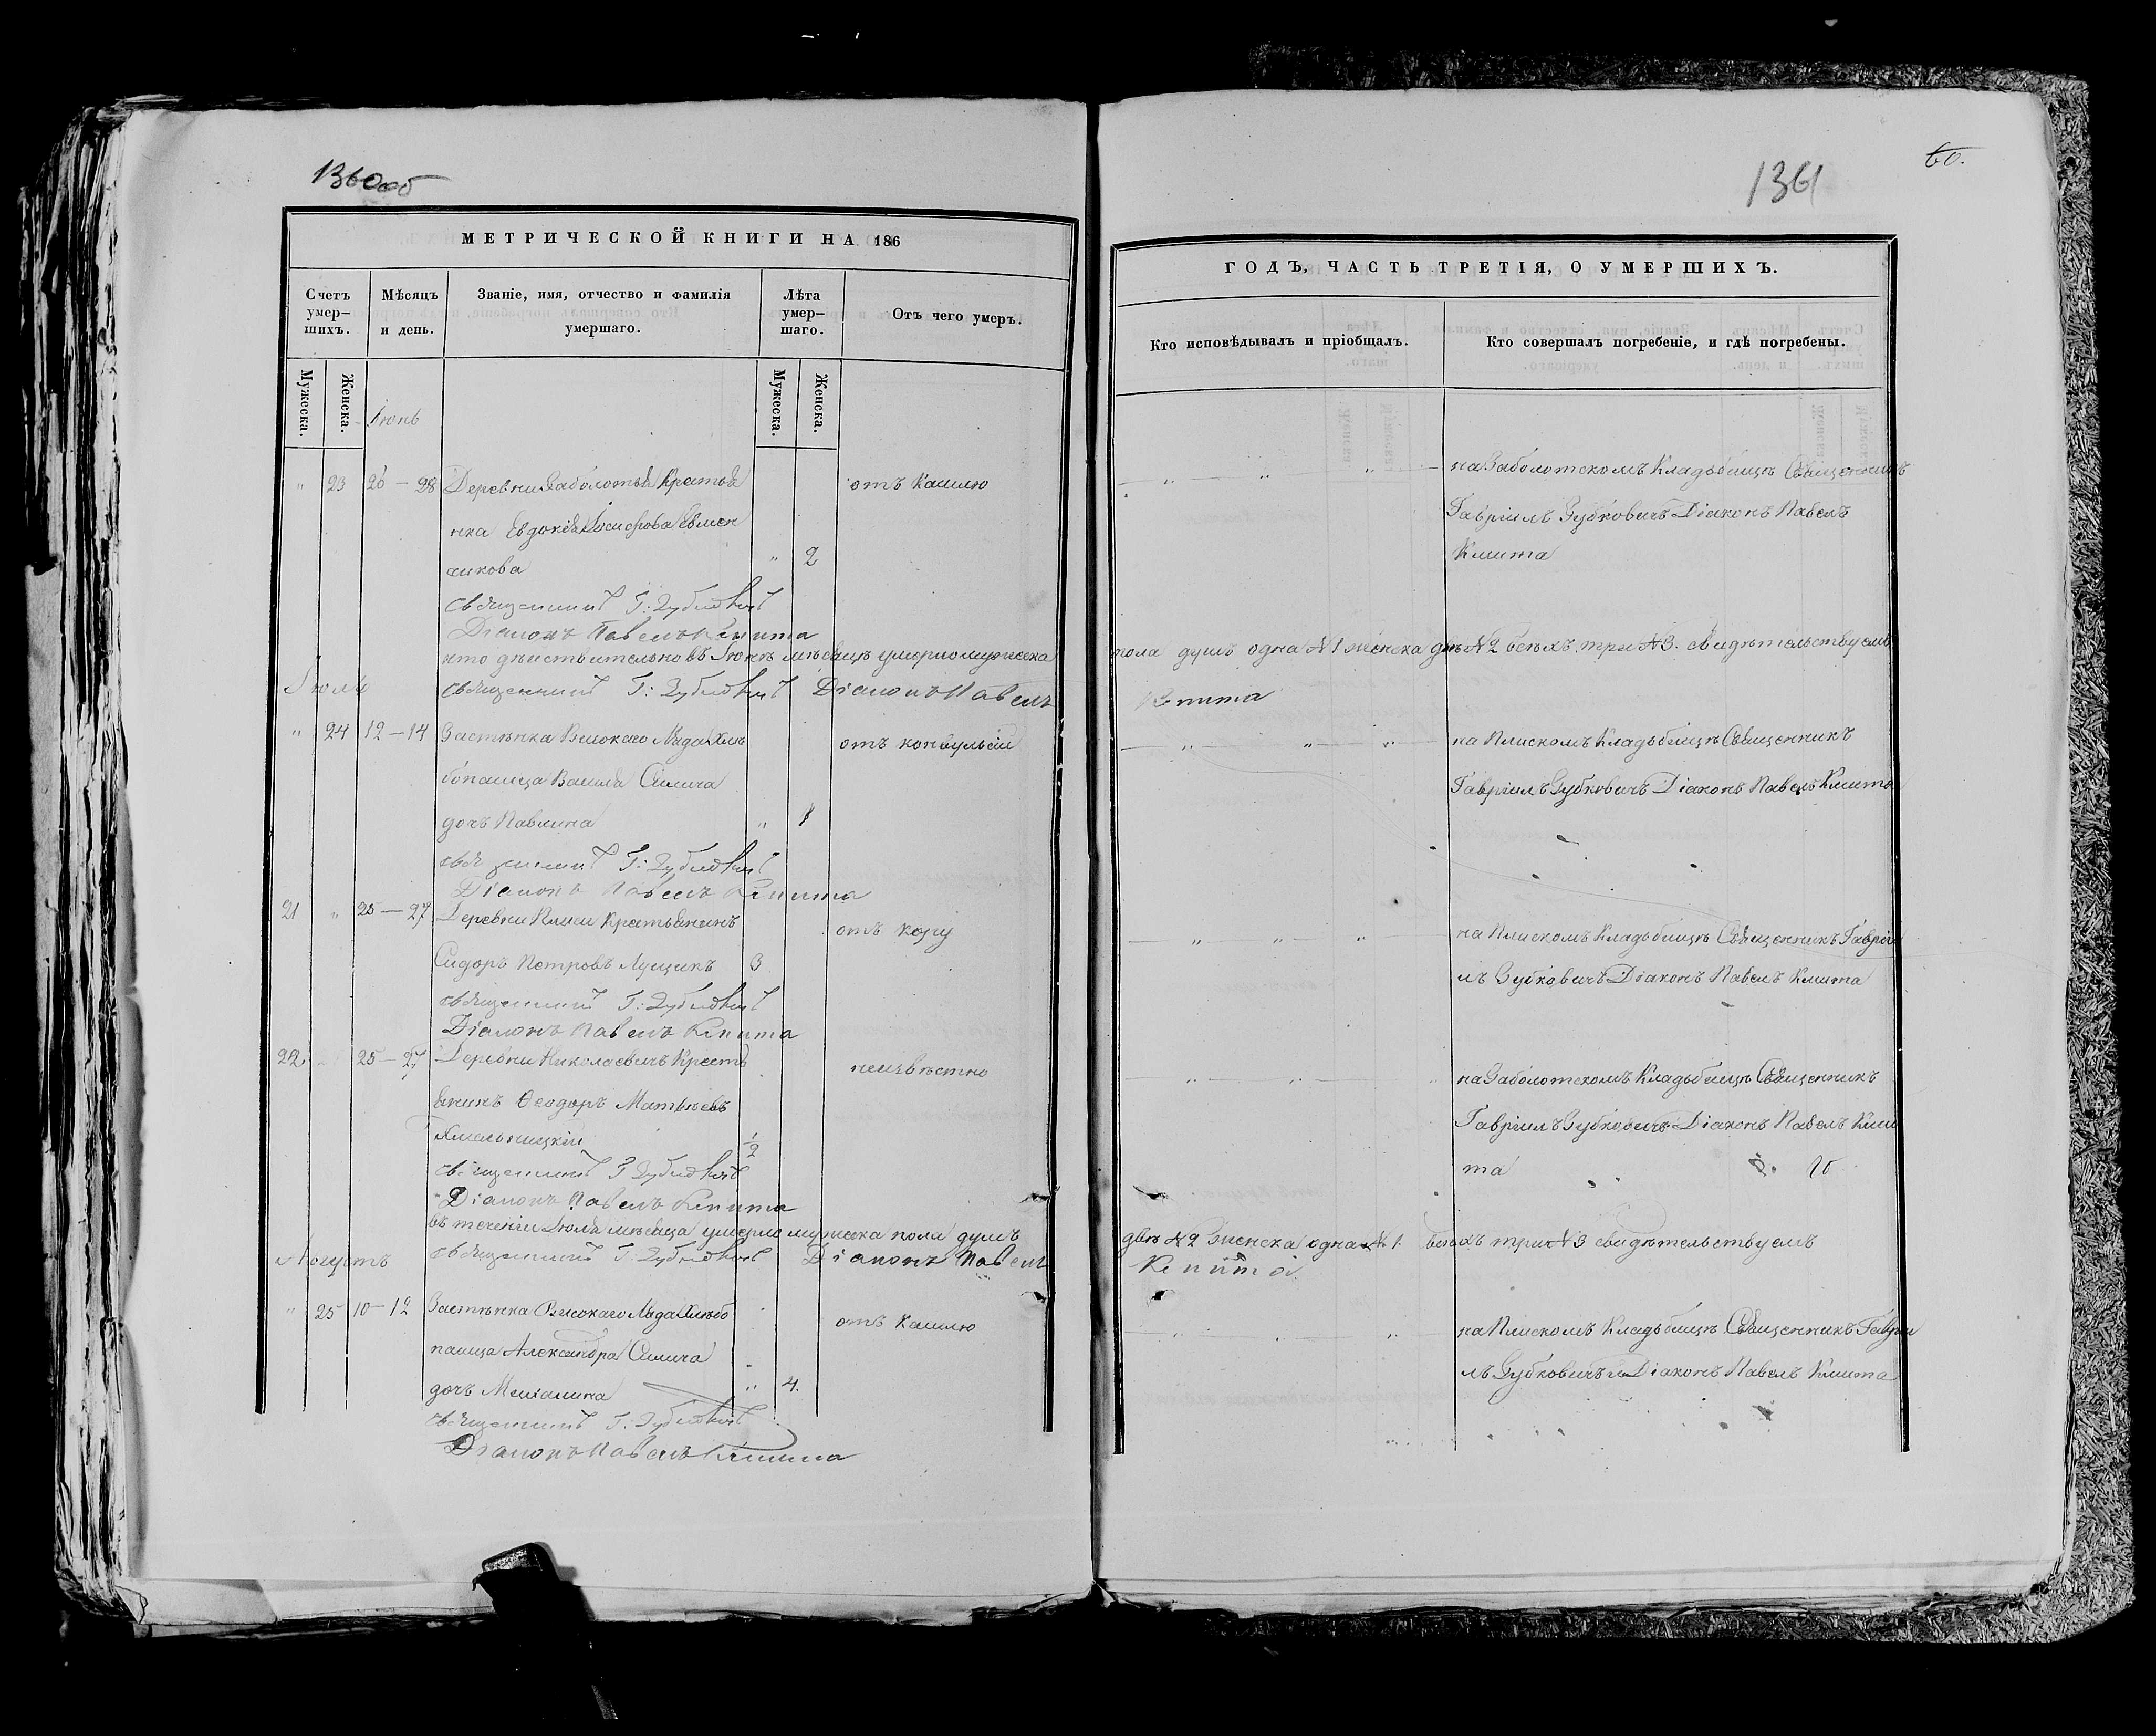 1360об
МЕТРИЧЕСКОЙ КНИГИ НА 186
Счетъ умер–шихъ.
Мѣсяцъ и день.
Званіе, имя, отчество и фамилія умершаго.
Лѣта умер–шаго.
Отъ чего умеръ.
Мужеска.
Женска.
Мужеска.
Женска.
Іюнь
" 23 26 – 28 Деревни Заболотья Крестья отъ Кашлю
нка Евдокія Іосифова
чикова " 2
Священникъ Г: Зубковичъ
Діаконъ Павелъ Кмита
что дѣйствительно въ Іюнѣ мѣсяцѣ умерло мужеска
Іюль Священникъ Г: Зубковичъ Діаконъ Павелъ
" 24 12 – 14 Застѣнка Высокаго Ляда Хлѣ отъ конвульсіи
бопашца Василія Силича
дочь Павлина " 1
Священникъ Г: Зубковичъ
Діаконъ Павелъ Кмита
21 " 25 – 27 Деревни Плиси Крестьянинъ отъ кору
Сидоръ Петровъ Лущикъ 3
Священникъ Г: Зубковичъ
Діаконъ Павелъ Кмита
22 25 – 27 Деревни Николаевичъ Кресть неизвѣстно
янинъ Ѳеодоръ Матвѣевъ
Хмельницкій 1/2
Священникъ Г Зубковичъ
Діаконъ Павелъ Кмита
въ теченіи Іюля мѣсяца умерло мужеска пола душъ
Августъ Священникъ Г: Зубковичъ Діаконъ Павелъ
" 25 10 – 12 Застѣнка Высокаго Ляда Хлѣбо отъ Кашлю
пашца Александра Силича
дочь Мелянина " 4.
Священникъ Г: Зубковичъ
Діаконъ Павелъ Кмита
1361
60.
ГОДЪ, ЧАСТЬ ТРЕТІЯ, О УМЕРШИХЪ.
Кто исповѣдывалъ и пріобщалъ.
Кто совершалъ погребеніе, и гдѣ погребены.
на Заболотскомъ Кладбищѣ Священникъ
Гавріилъ Зубковичъ Діаконъ Павелъ
Кмита
пола душъ одна №1 женска двѣ №2 всѣхъ три №3. свидѣтельствуемъ
Кмита
на Плискомъ Кладбищѣ Священникъ
Гавріилъ Зубковичъ Діаконъ Павелъ Кмита
на Плискомъ Кладбищѣ Священникъ Гавріи
лъ Зубковичъ Діаконъ Павелъ Кмита
на Заболотскомъ Кладбищѣ Священникъ
Гавріилъ Зубковичъ Діаконъ Павелъ Кми
та
двѣ №2 женска одна №1. всѣхъ три №3 свидѣтельствуемъ
Кмита.
на Плискомъ Кладбищѣ Священникъ Гавріи
лъ Зубковичъ и Діаконъ Павелъ Кмита